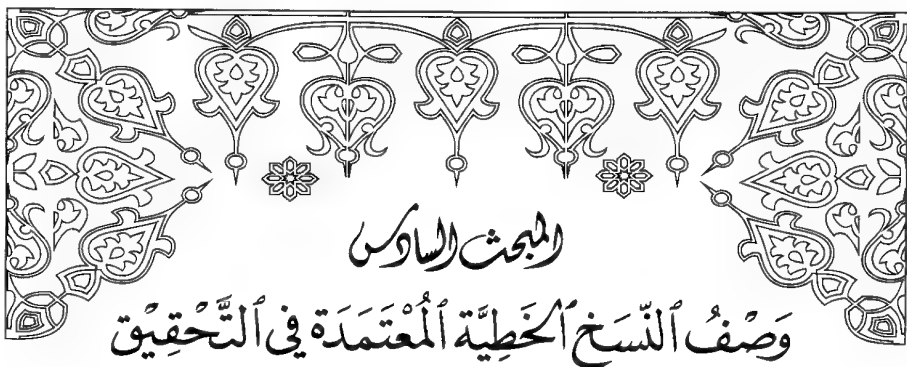 المبحث السادس
وَصْفُ ٱلنُّسَخِ ٱلخَطِيَّة ٱلْمُعْتَمَدَة فِي ٱلتَّحْقِيْق